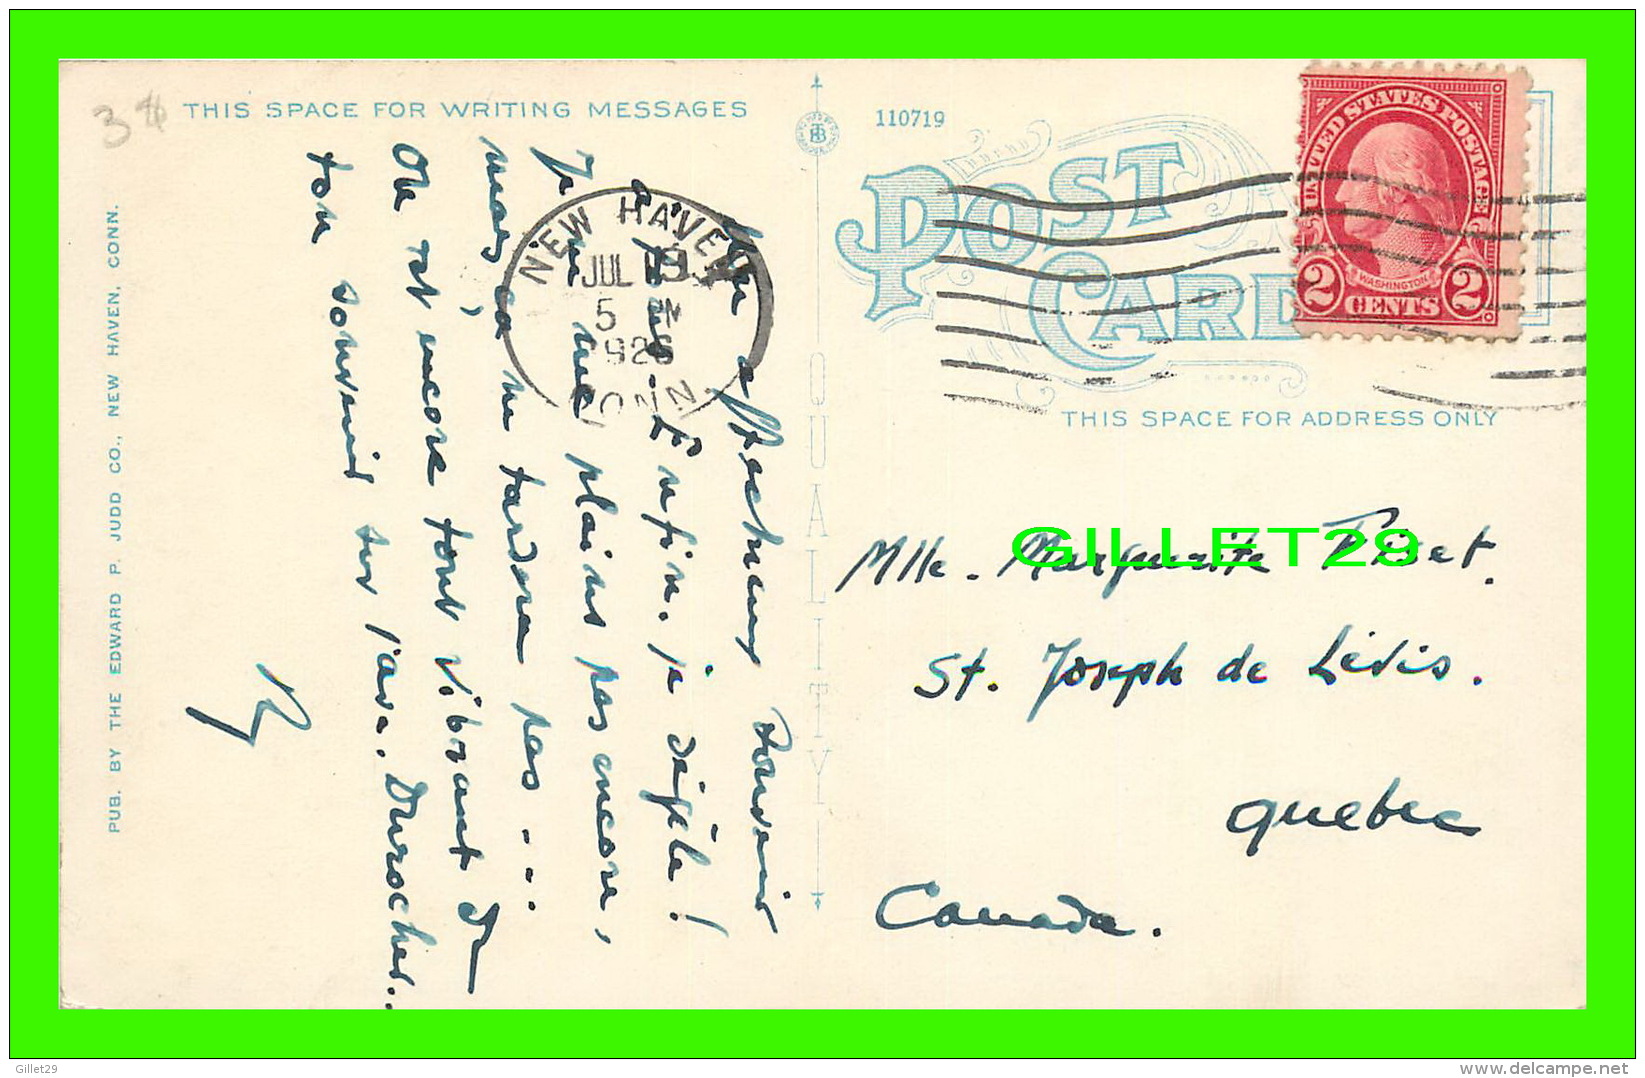 3$
THIS SPACE FOR WRITING MESSAGES
110719
POST CARD
UNITED STATES POSTAGE
WASHINGTON
2 CENTS 2
NEW HAVEN
JUL 19
5
1926
CONN
THIS SPACE FOR ADDRESS ONLY
QUALITY
PUB. BY THE EDWARD P. JUDD CO., NEW HAVEN, CONN.
affectueux souvenir
Enfin, je dégèle!
Je ne me plains pas encore,
mais ça ne tardera pas ....
On est encore tout vibrant de
ton souvenir sur l'ave. Durocher..
GILLET29
Mlle. Marguerite Pinet.
St. Joseph de Lévis.
Quebec
Canada.
Gillet29
delcampe.net